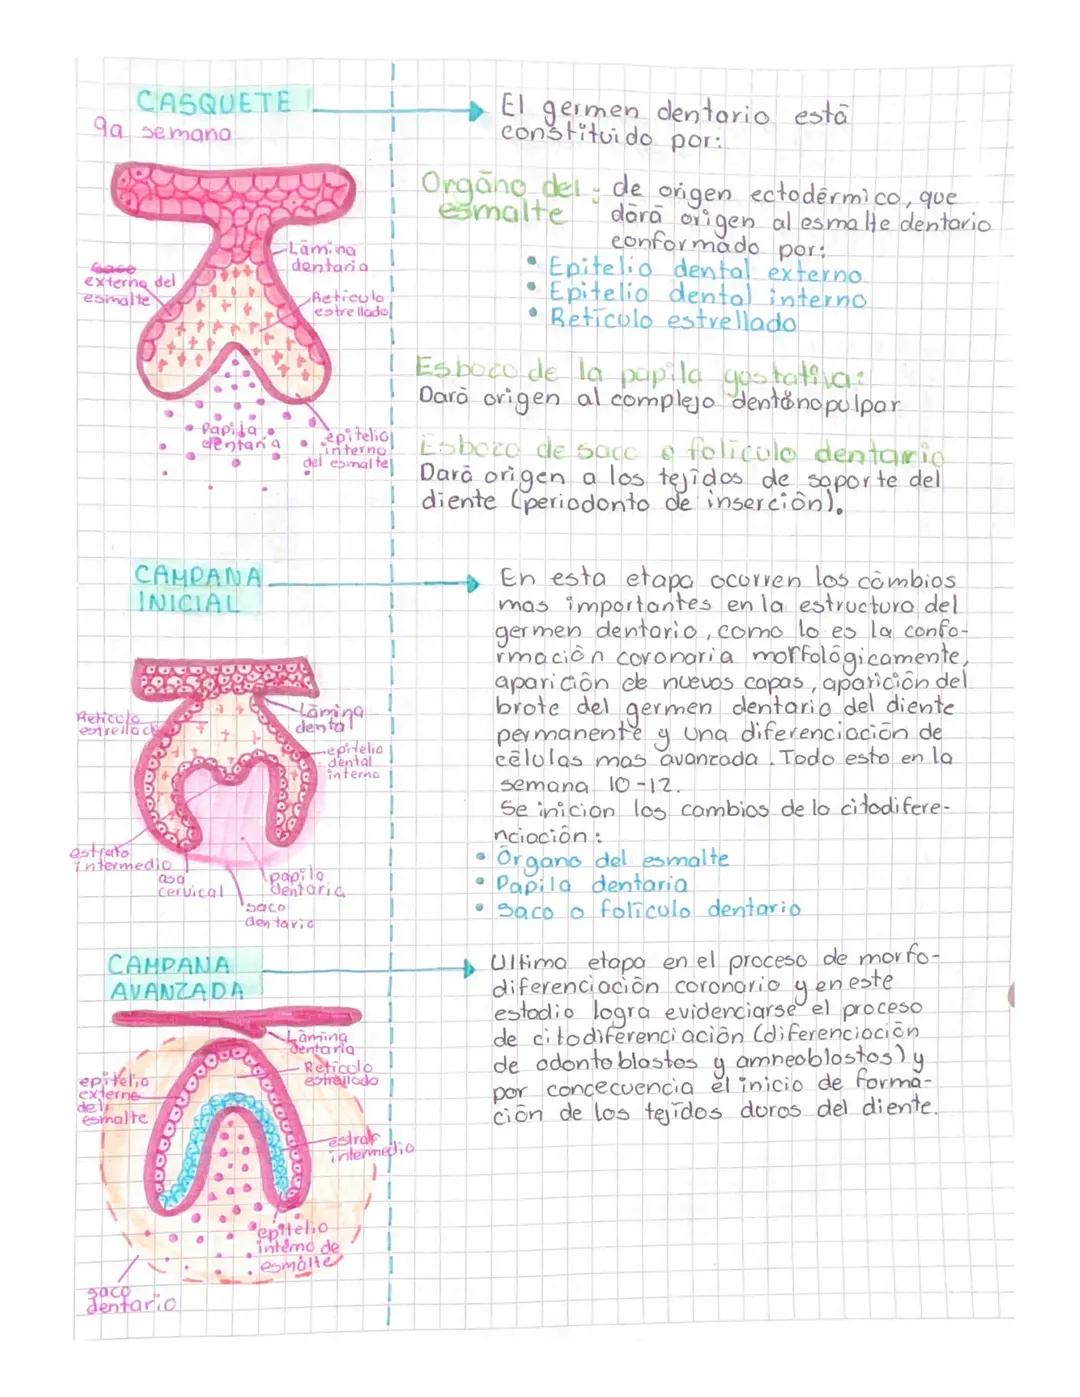 CASQUETE
9a semana
Lámina
dentaria
externo del
esmalte
Retículo
estrellado
Papila
dentaria
epitelio
interno
del esmalte
El germen dentario está
constituido por:
Orgáno del : de origen ectodérmico, que
esmalte dará origen al esmalte dentario
conformado por:
• Epitelio dental externo
• Epitelio dental interno
• Retículo estrellado
Esbozo de la papila gostativa:
Dará origen al complejo dentinopulpar
Esbozo de saco o folículo dentario
Dará origen a los tejidos de soporte del
diente (periodonto de inserción).
CAMPANA
INICIAL
Retículo
estrellado
Lámina
dental
epitelio
dental
interno
estrato
intermedio
asa
cervical
papila
dentaria
saco
dentario
En esta etapa ocurren los cambios
mas importantes en la estructura del
germen dentario, como lo es la confo-
rmación coronaria morfológicamente,
aparición de nuevas capas, aparición del
brote del germen dentario del diente
permanente y una diferenciación de
células mas avanzada. Todo esto en la
semana 10-12.
Se inician los cambios de la citodifere-
nciación:
• Órgano del esmalte
• Papila dentaria
• Saco o folículo dentario
CAMPANA
AVANZADA
Lámina
dentaria
Retículo
estrellado
epitelio
externo
del
esmalte
estrato
intermedio
epitelio
interno de
esmalte
saco
dentario
Ultima etapa en el proceso de morfo-
diferenciación coronario y en este
estadio logra evidenciarse el proceso
de citodiferenciación (diferenciación
de odontoblastos y amneoblastos) y
por concecuencia el inicio de forma-
ción de los tejidos duros del diente.